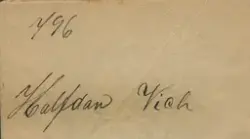 796
Halfdan Vich